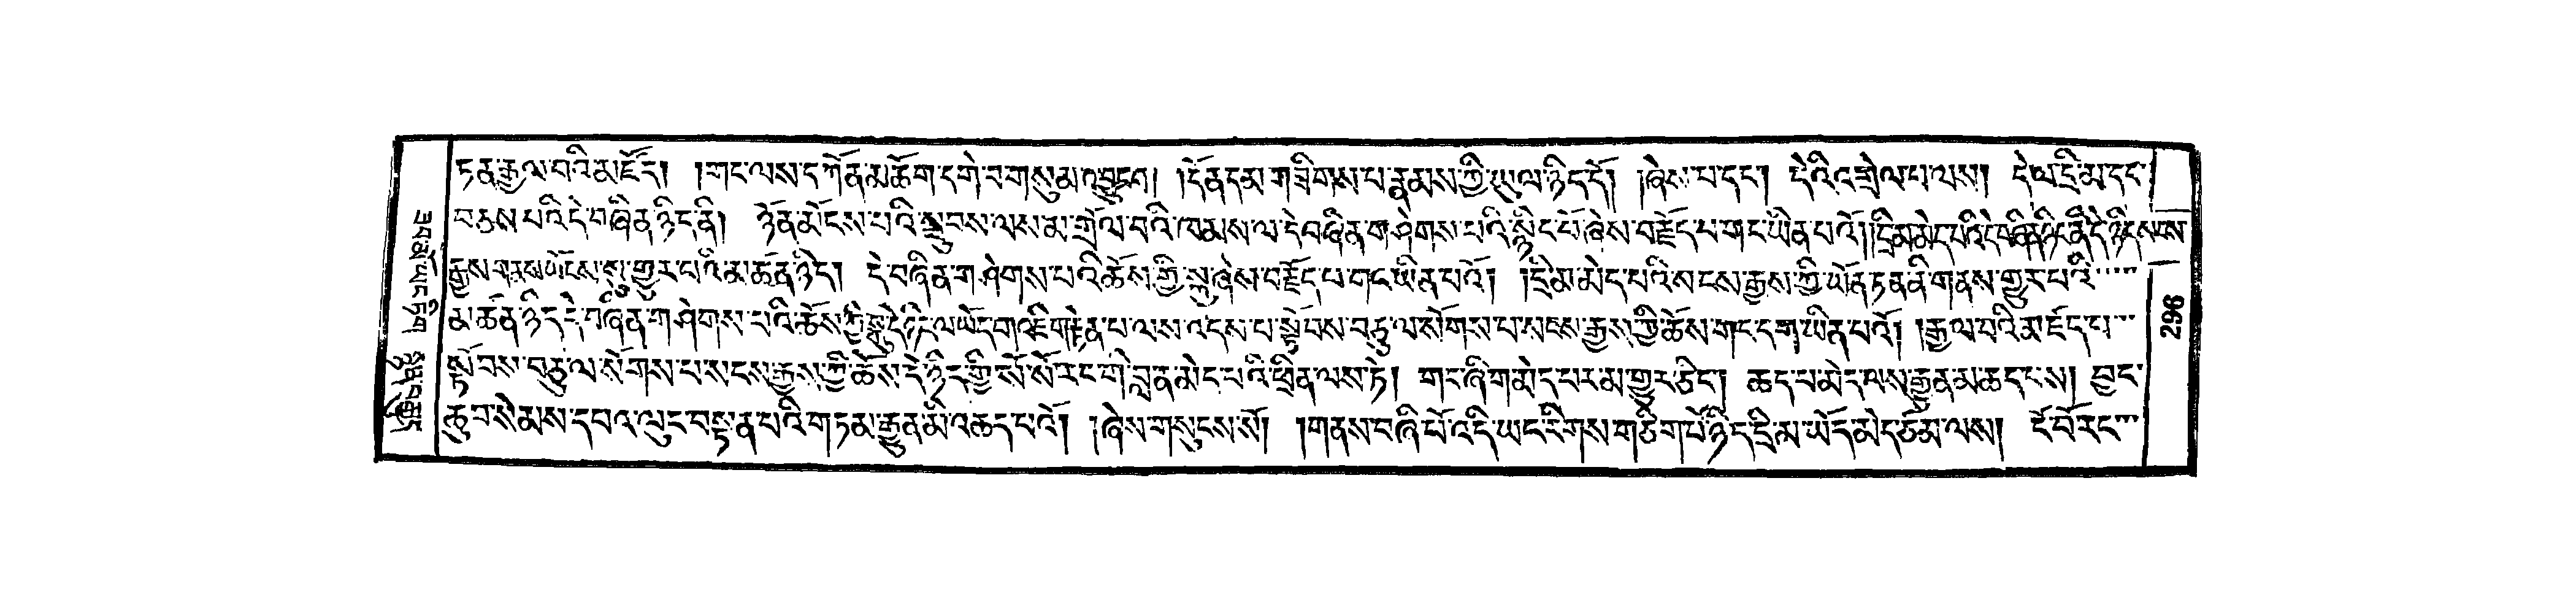 ཏན་རྒྱལ་བའི་མཛོད། །གང་ལས་དཀོན་མཆོག་དགེ་བ་གསུམ་འབྱུང་བ། །དོན་དམ་གཟིགས་པ་རྣམས་ཀྱི་ཡུལ་ཉིད་དོ། །ཞེས་པ་དང་། དེའི་འགྲེལ་པ་ལས། དེ་ལ་དྲི་མ་དང་
བཅས་པའི་དེ་བཞིན་ཉིད་ནི། ཉོན་མོངས་པའི་སྦུབས་ལས་མ་གྲོལ་བའི་ཁམས་ལ་དེ་བཞིན་གཤེགས་པའི་སྙིང་པོ་ཞེས་བརྗོད་པ་གང་ཡིན་པའོ། །དྲི་མ་མེད་པའི་དེ་བཞིན་ཉིད་ནི་དེ་ཉིད་སངས་
རྒྱས་གནས་ཡོངས་སུ་གྱུར་པའི་མཚན་ཉིད། དེ་བཞིན་གཤེགས་པའི་ཆོས་ཀྱི་སྐུ་ཞེས་བརྗོད་པ་གང་ཡིན་པའོ། །དྲི་མ་མེད་པའི་སངས་རྒྱས་ཀྱི་ཡོན་ཏན་ནི་གནས་གྱུར་པའི་
མཚན་ཉིད་དེ་བཞིན་གཤེགས་པའི་ཆོས་ཀྱི་སྐུ་དེ་ཉིད་ལ་ཡོད་པ་འཇིག་རྟེན་པ་ལས་འདས་པ་སྟོབས་བཅུ་ལ་སོགས་པ་སངས་རྒྱས་ཀྱི་ཆོས་གང་དག་ཡིན་པའོ། །རྒྱལ་བའི་མཛད་པ་
སྟོབས་བཅུ་ལ་སོགས་པ་སངས་རྒྱས་ཀྱི་ཆོས་དེ་ཉིད་ཀྱི་སོ་སོ་རང་གི་བླ་ན་མེད་པའི་ཕྲིན་ལས་ཏེ། གང་ཞིག་མེད་པར་མ་གྱུར་ཅིང། ཆད་པ་མེད་ལས་རྒྱུན་མ་ཆད་པས། བྱང་
ཆུབ་སེམས་དཔའ་ལུང་བསྟན་པའི་གཏམ་རྒྱུན་མི་འཆད་པའོ། །ཞེས་གསུངས་སོ། །གནས་བཞི་པོ་འདི་ཡང་རིགས་གཅིག་པོ་ཉིད་དྲི་མ་ཡོད་མེད་ཙམ་ལས། ངོ་བོ་རང་